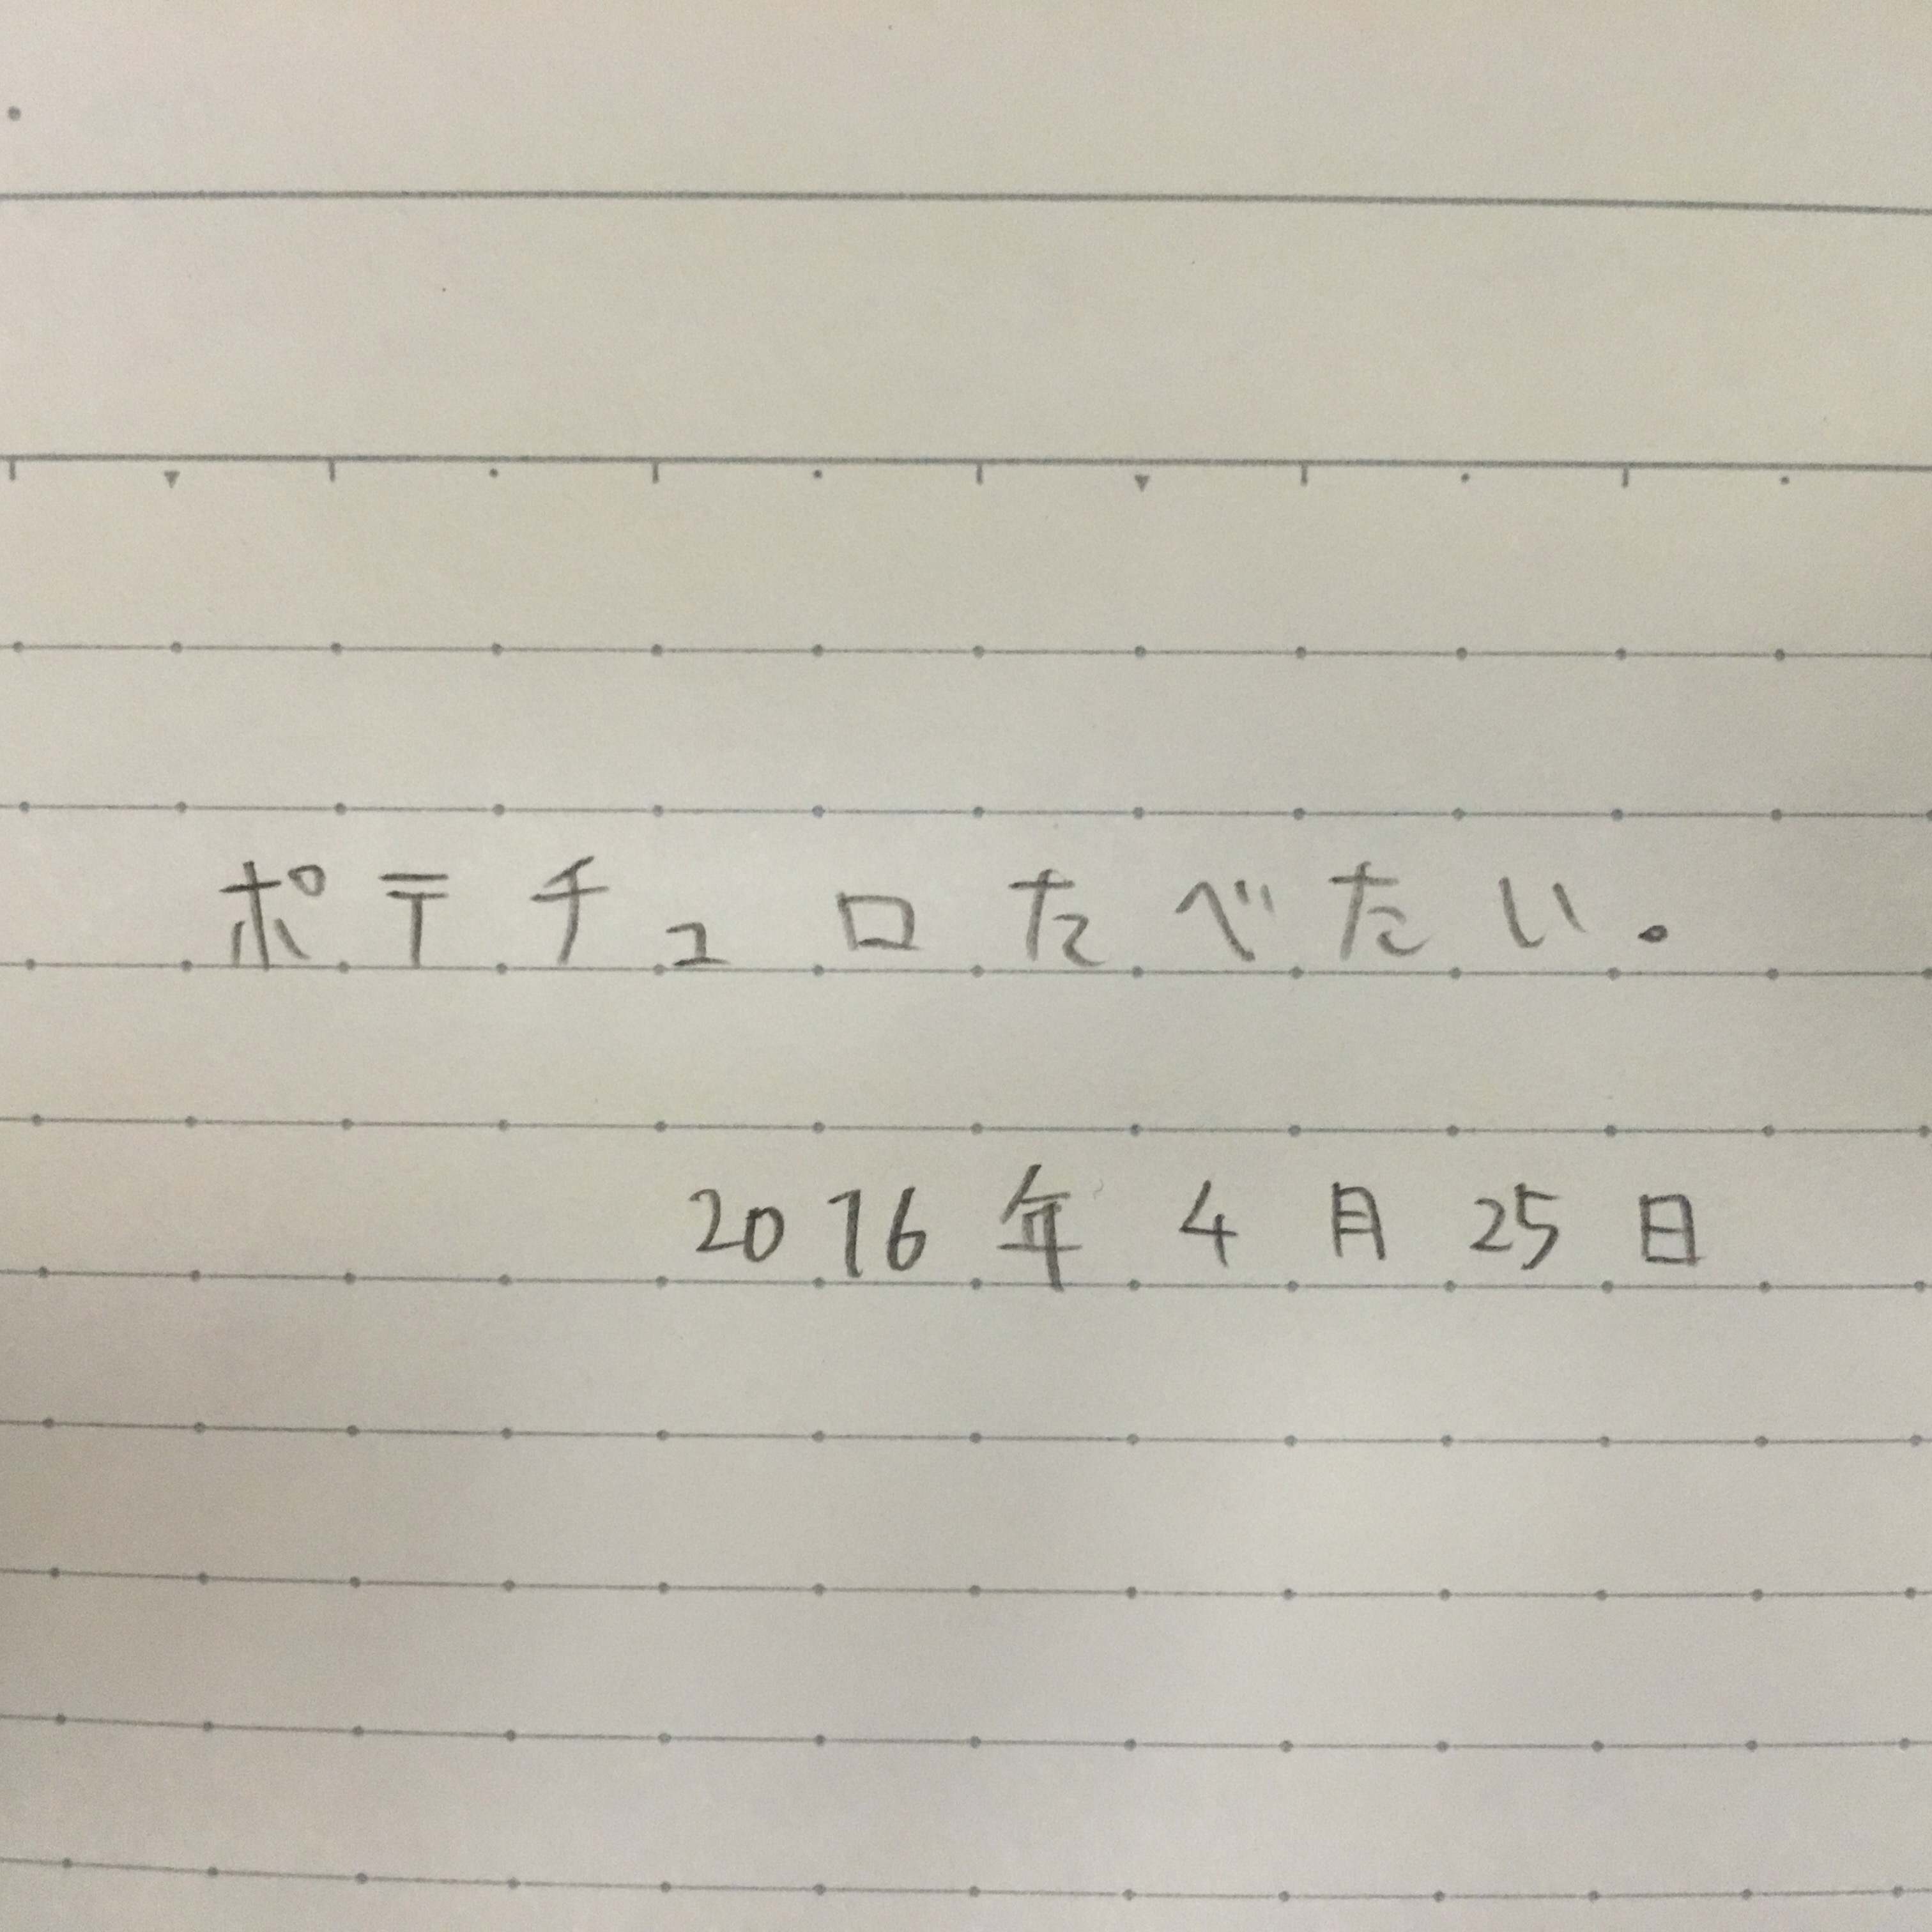 ポテチュロたべたい。
2016年4月25日